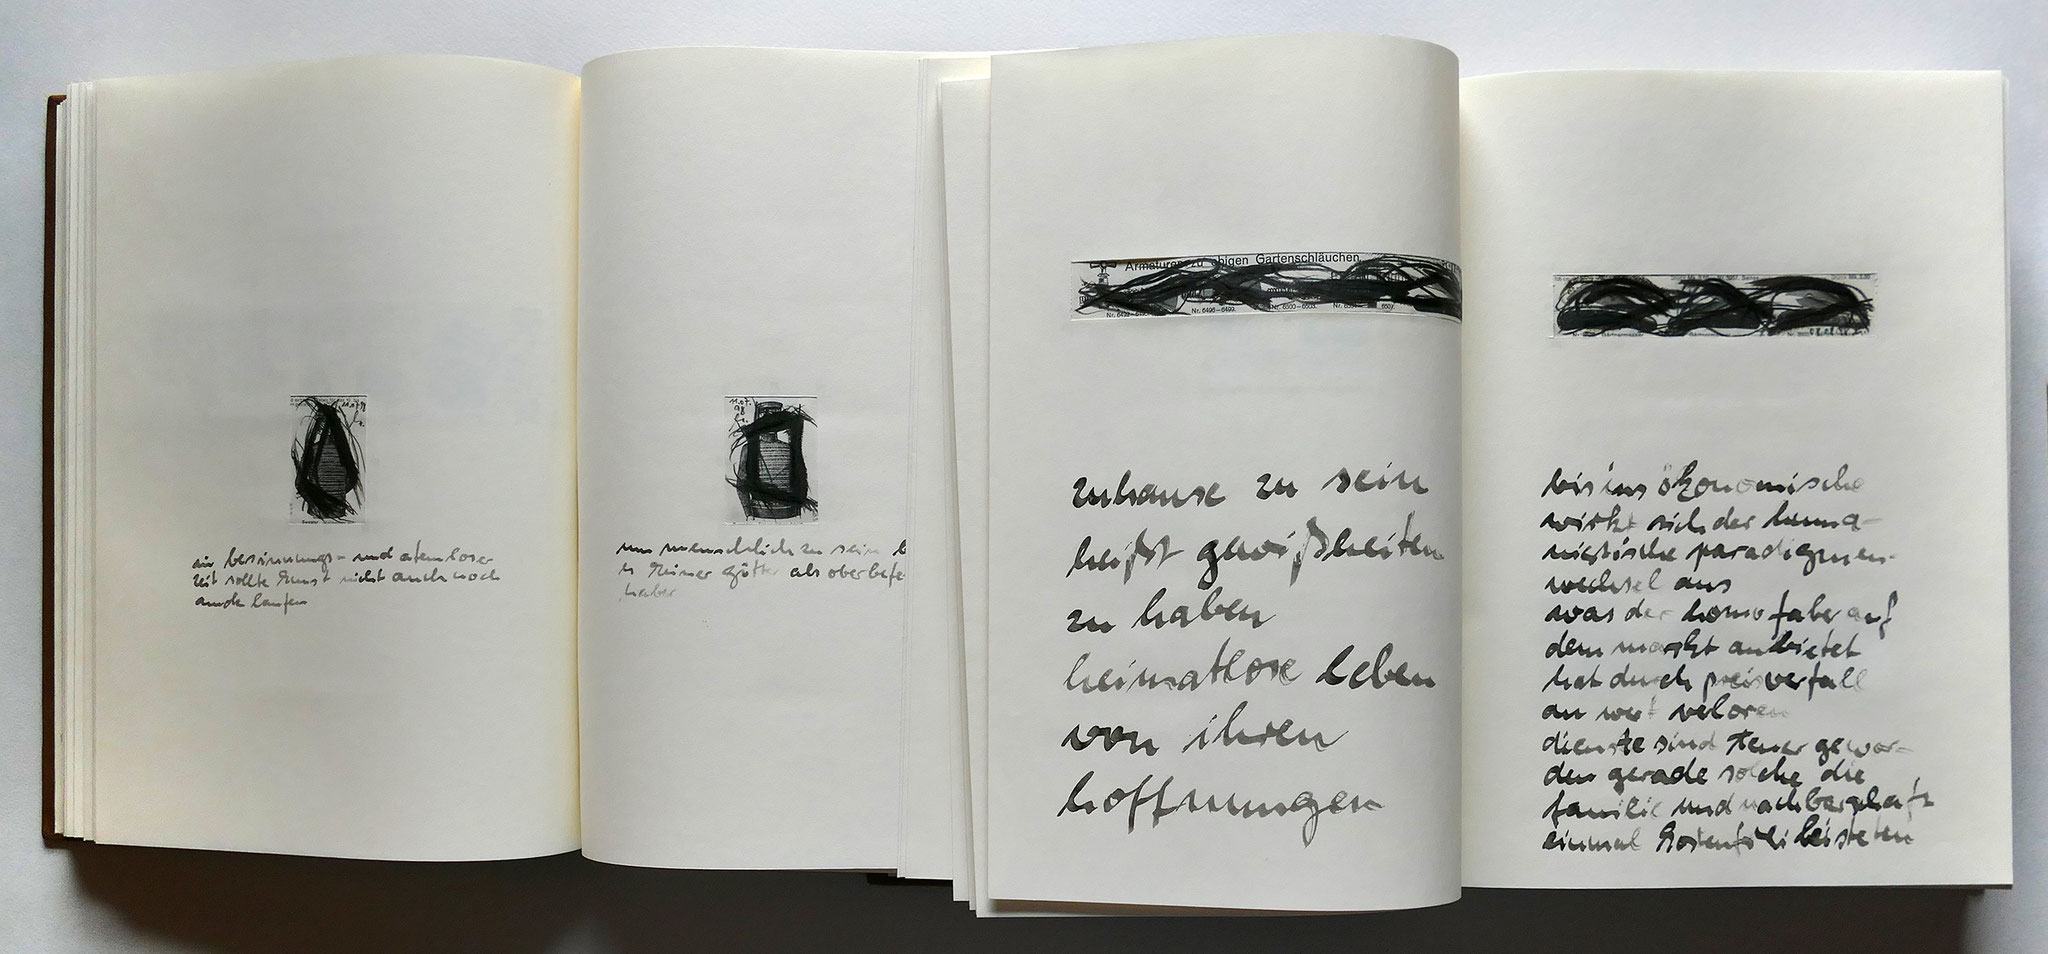 11.07.98
in besinnungs- und atemloser
zeit sollte kunst nicht auch noch
amok laufen
11.07.
98
um menschlich zu sein b
s keiner götter als oberbefe
haber
Armaturen zu obigen Gartenschläuchen.
Nr. 6496–6499.
Nr. 6500–6503.
6507.
zuhause zu sein
heißt gewißheiten
zu haben
heimatlose leben
von ihren
hoffnungen
bis ins ökonomische
wirkt sich der huma-
nistische paradigmen-
wechsel aus
was der homo faber auf
dem markt anbietet
hat durch preisverfall
an wert verloren
dienste sind teuer gewor-
den gerade solche die
familie und nachbarschaft
einmal kostenfrei leisteten